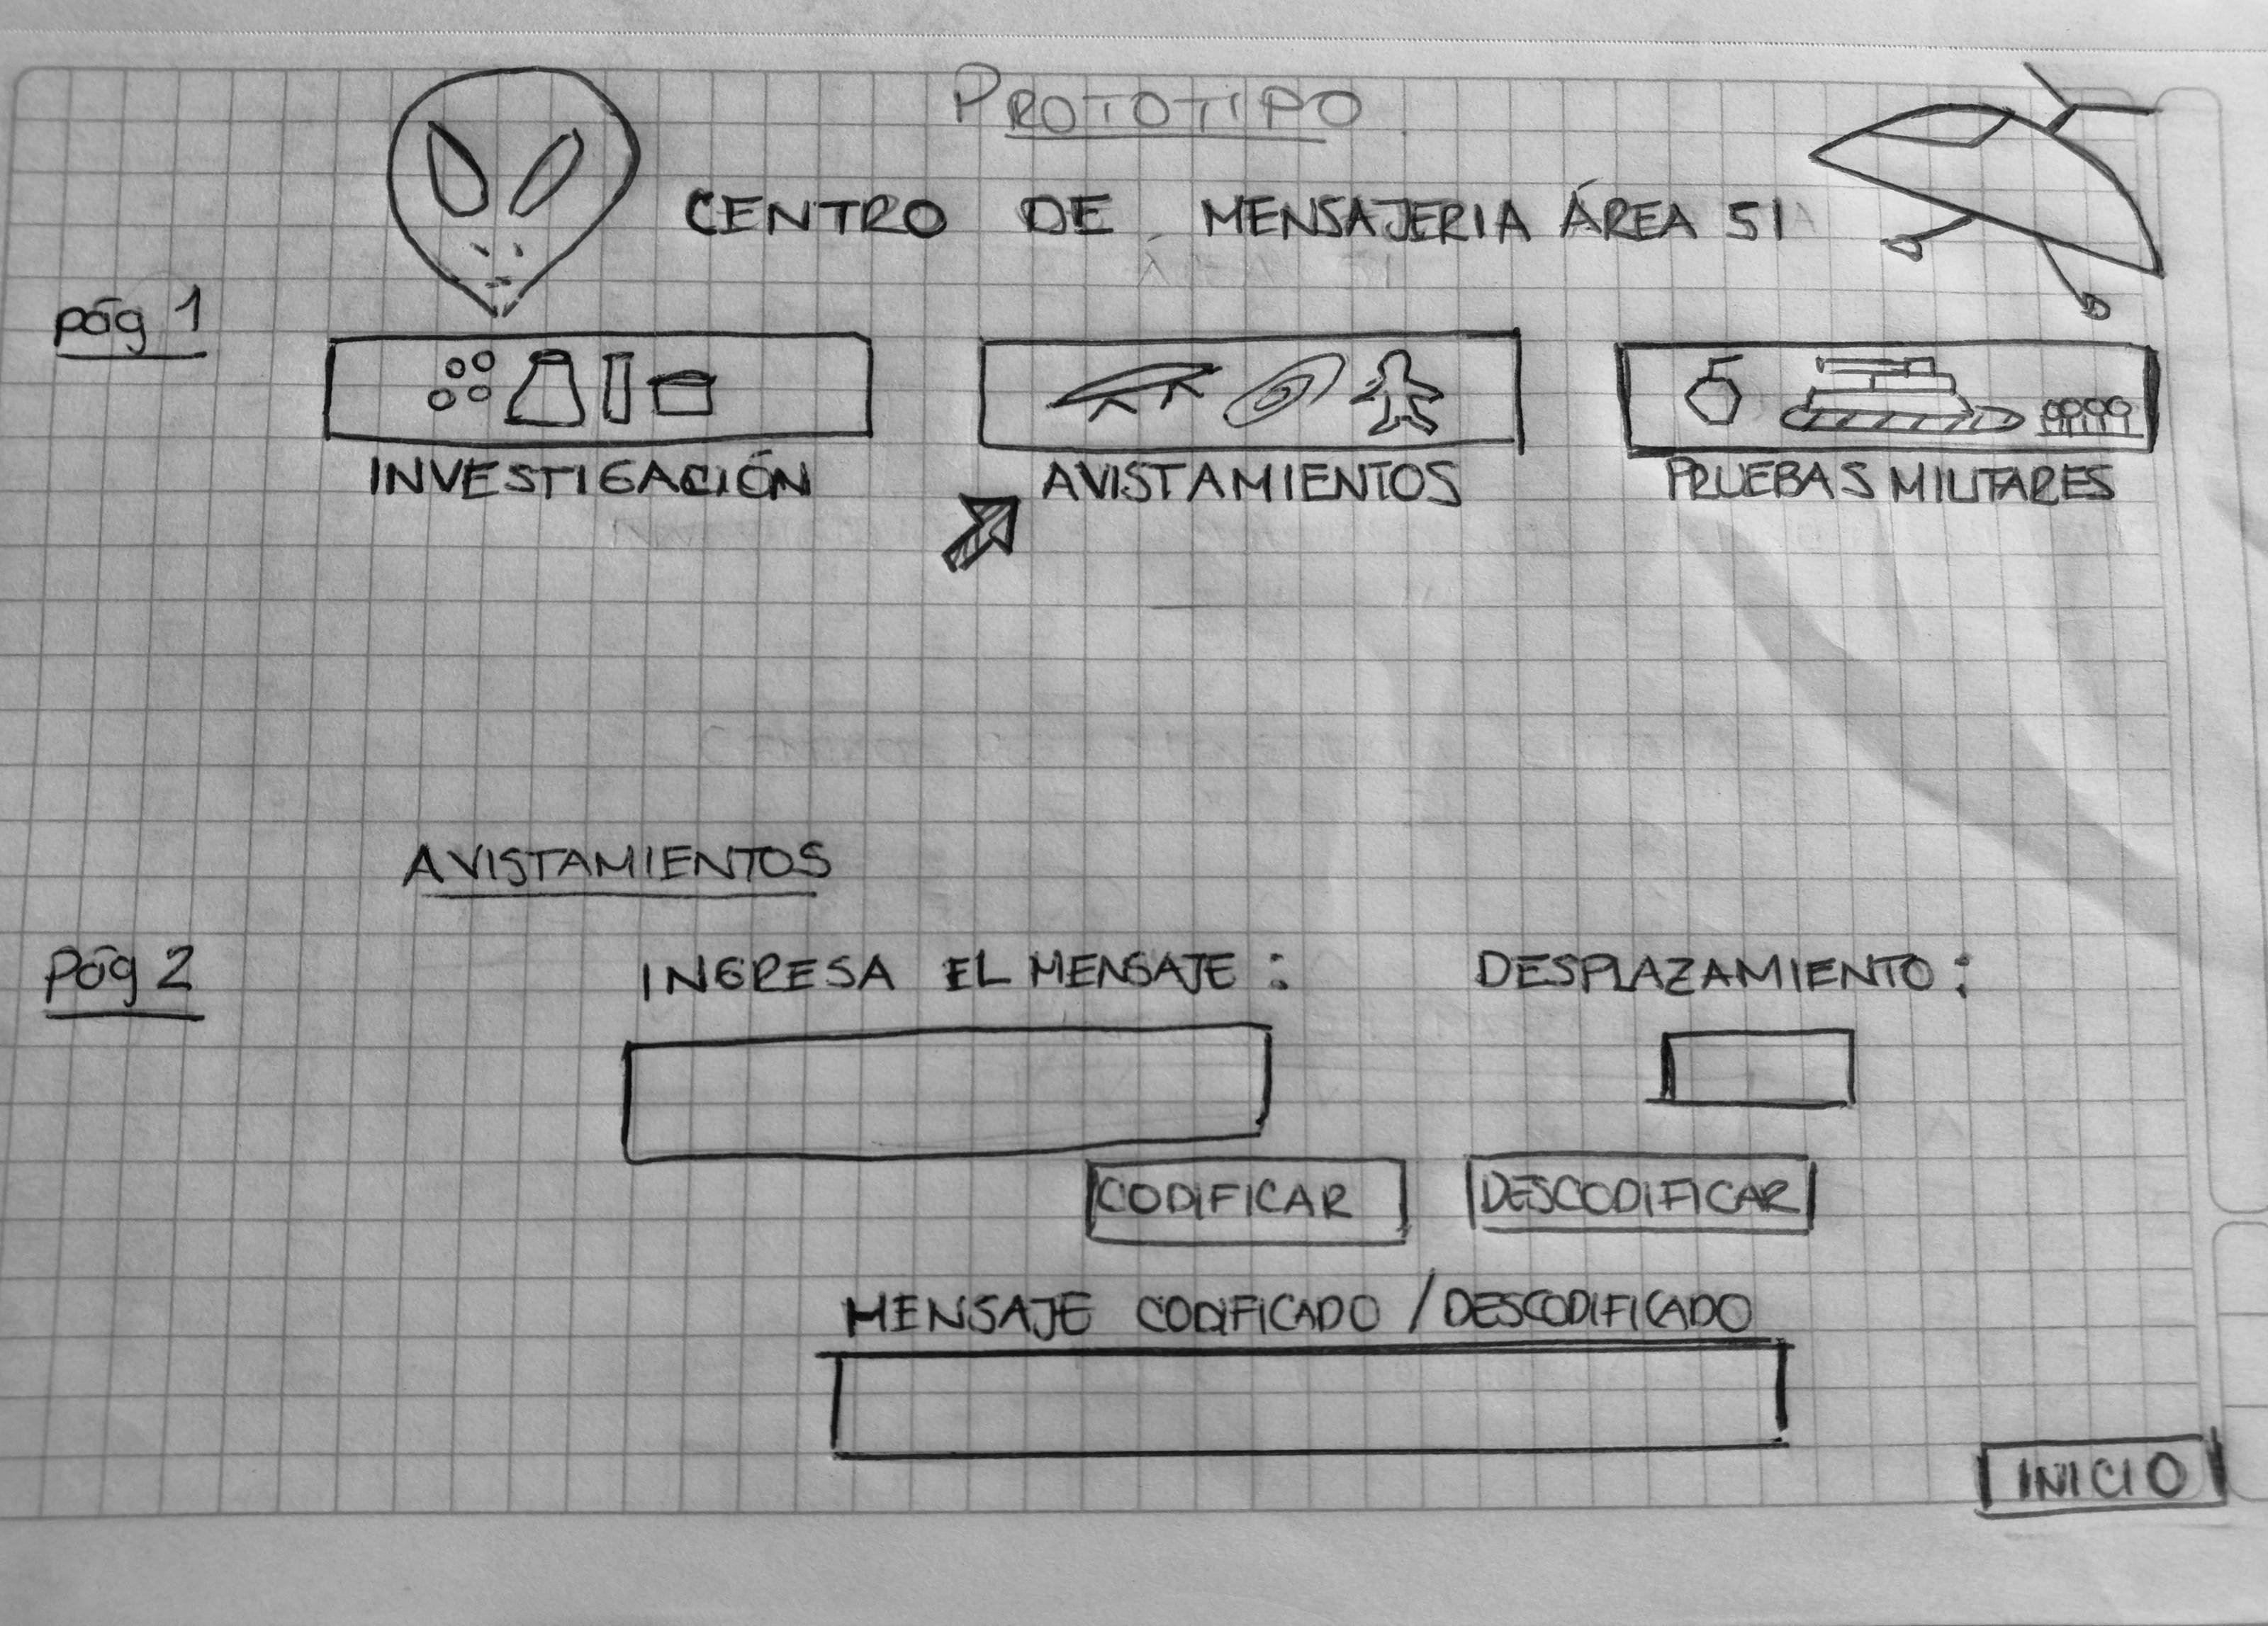 PROTOTIPO
CENTRO DE MENSAJERIA ÁREA 51
pág 1
INVESTIGACIÓN AVISTAMIENTOS PRUEBAS MILITARES
AVISTAMIENTOS
Pág 2
INGRESA EL MENSAJE: DESPLAZAMIENTO:
CODIFICAR DESCODIFICAR
MENSAJE CODIFICADO / DESCODIFICADO
INICIO